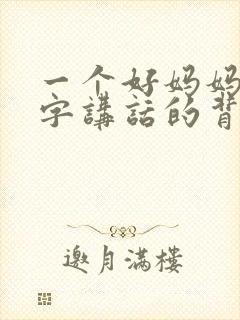 一个好妈妈
字講話的背
邀月满樓